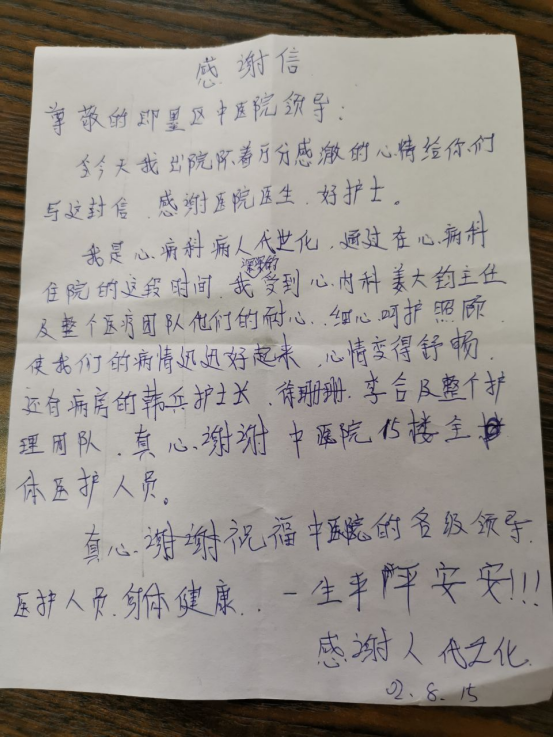 感谢信
尊敬的即墨区中医院领导:
今天我出院怀着万分感激的心情给你们
写这封信,感谢医院医生,好护士。
我是心病科病人代世化,通过在心病科
深深的
住院的这段时间,我受到心内科姜大钧主任
及整个医疗团队他们的耐心,细心呵护照顾
使我们的病情迅迅好起来,心情变得舒畅,
还有病房的韩兵护士长,徐珊珊,李合及整个护
理团队,真心谢谢中医院15楼全
体医护人员。
真心谢谢祝福中医院的各级领导,
医护人员,身体健康..一生平平安安!!!
感谢人 代世化
8.15